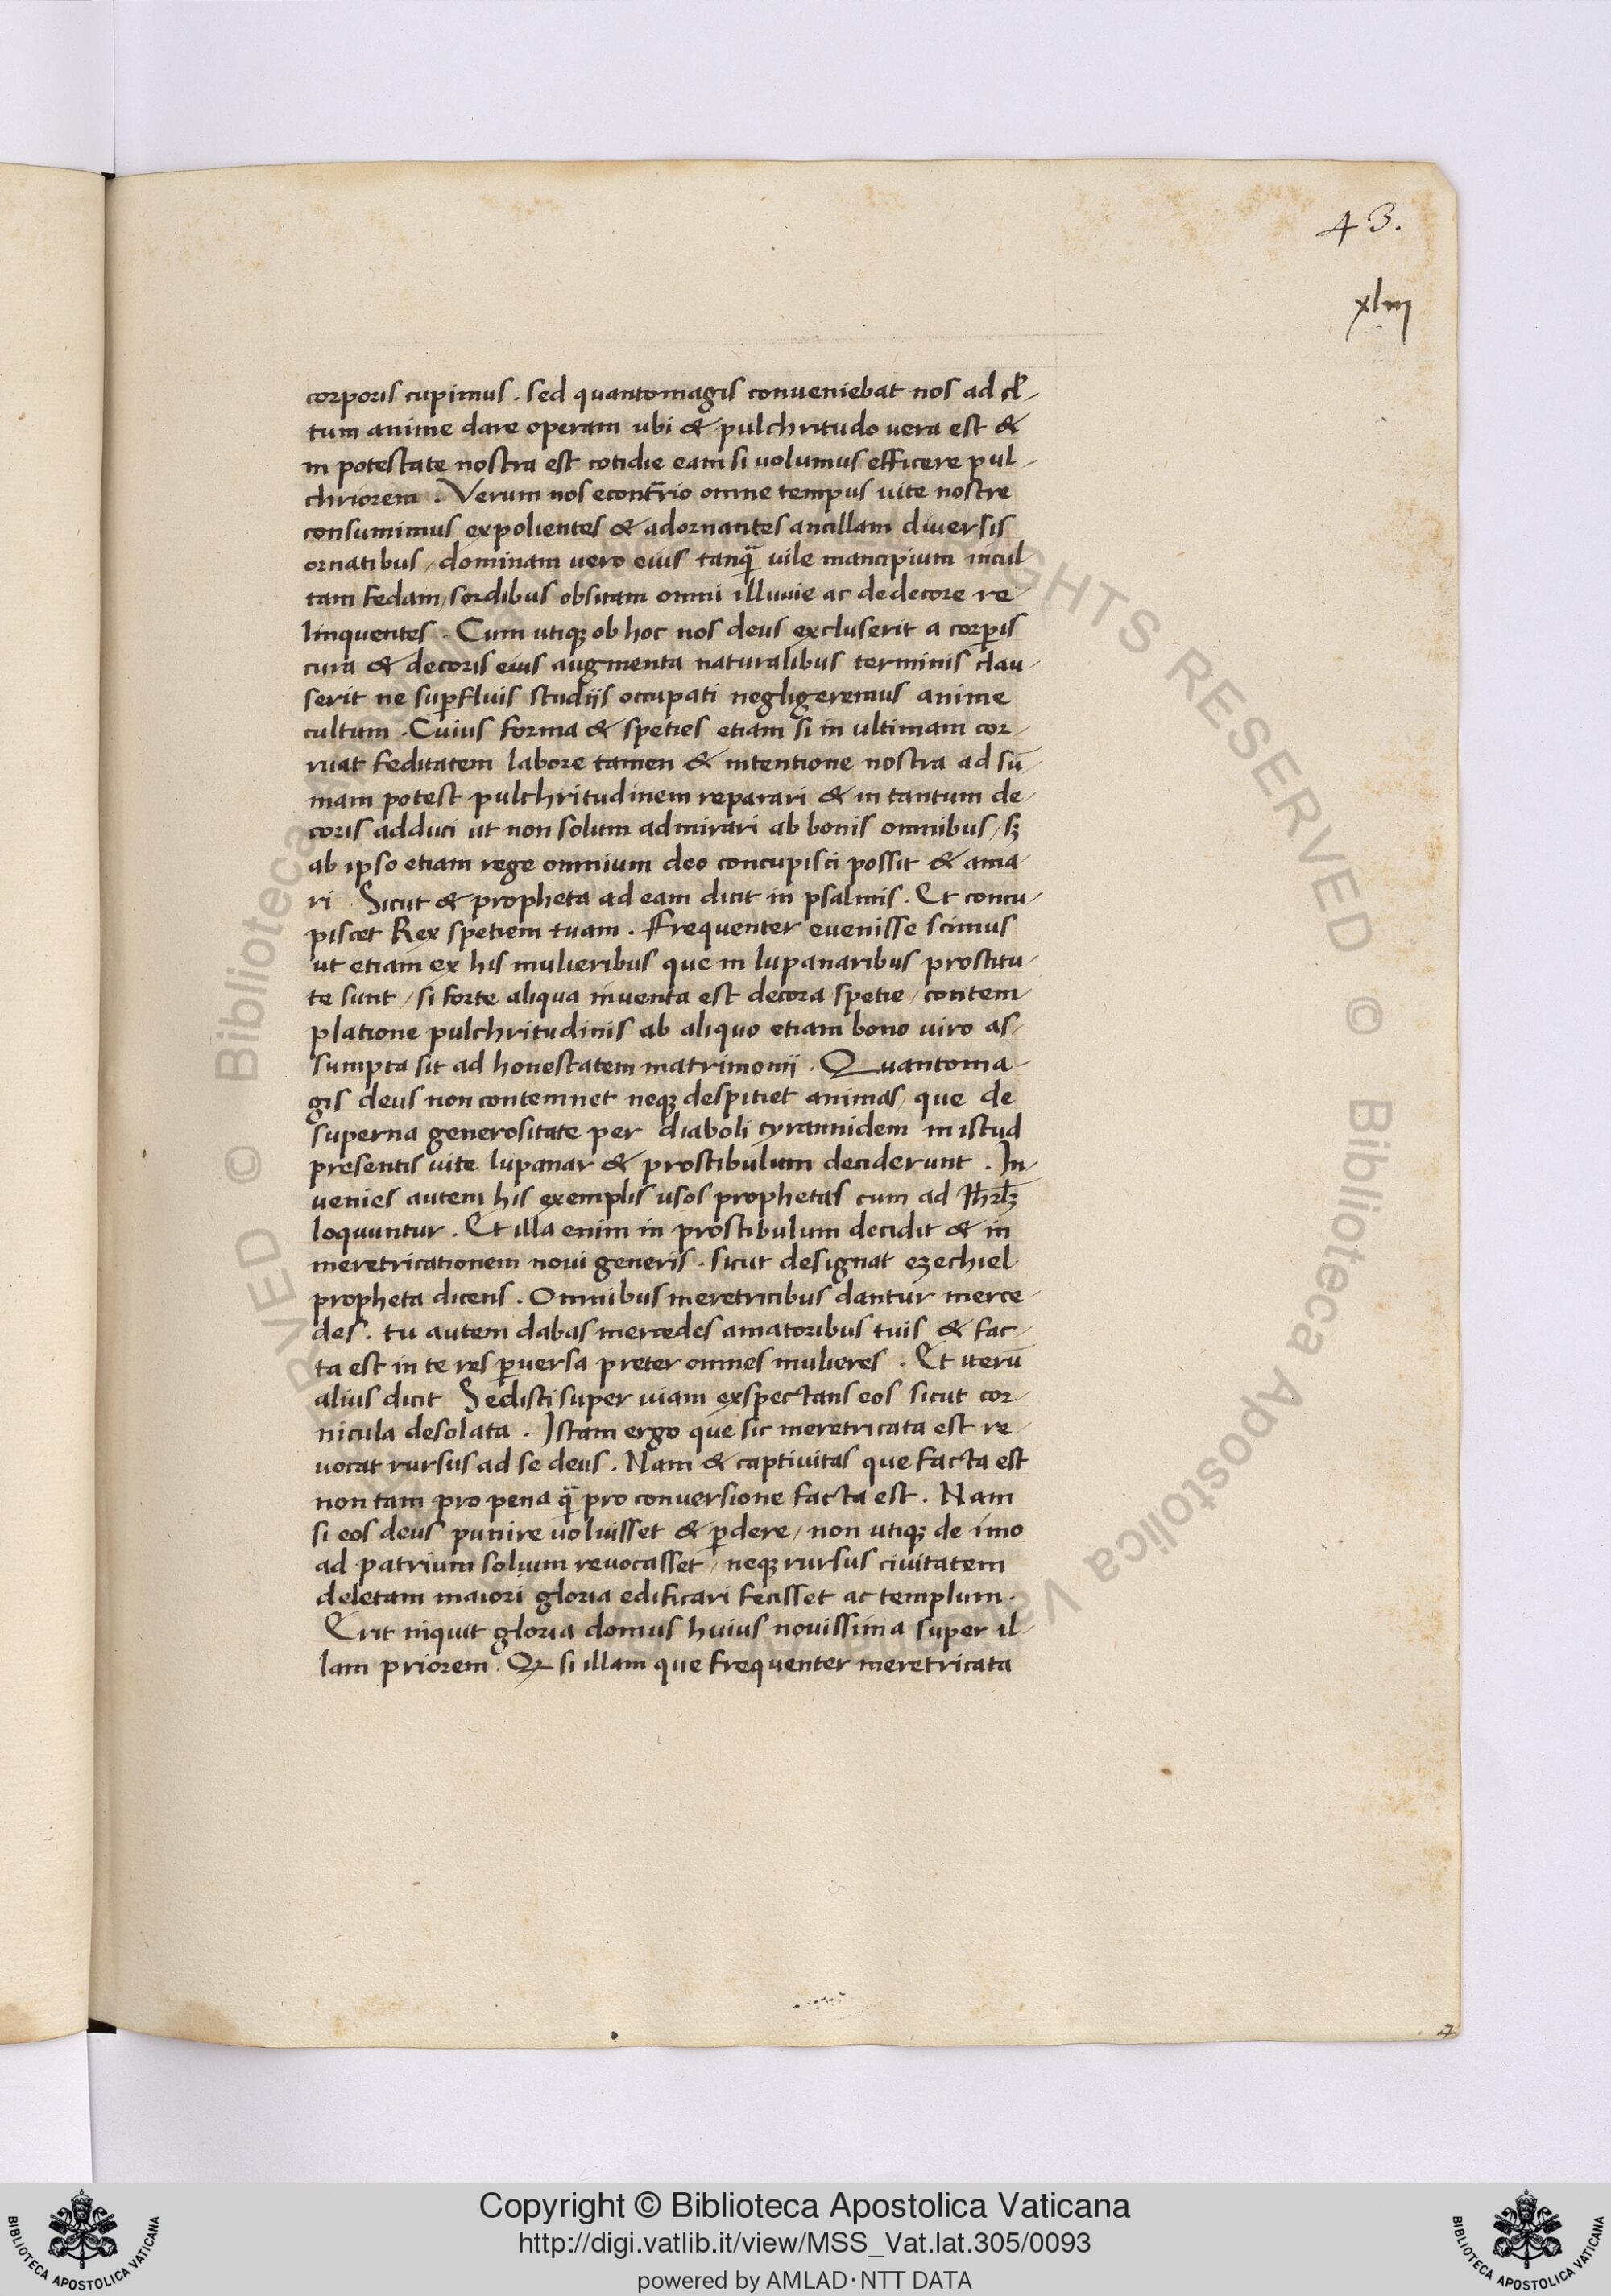 43.
xliij
corporis cupimus. sed quantomagis conueniebat nos ad cl̃-
tum anime dare operam ubi & pulchritudo uera est &
in potestate nostra est cotidie eam si uolumus efficere pul-
chriorem. Verum nos econtr̃rio omne tempus uite nostre
consumimus expolientes & adornantes ancillam diuersis
ornatibus, dominam uero eius tanq̃ uile mancipium incul
tam fedam, sordibus obsitam omni illuuie ac dedecore re-
linquentes. Cum utiqꝫ ob hoc nos deus excluserit a corꝑis
cura & decoris eius augmenta naturalibus terminis clau-
serit ne suꝑfluis studijs occupati negligeremus anime
cultum. Cuius forma & speties etiam si in ultimam cor-
ruat feditatem labore tamen & intentione nostra ad sū-
mam potest pulchritudinem reparari & in tantum de-
coris adduci ut non solum admirari ab bonis omnibus, sꝫ
ab ipso etiam rege omnium deo concupisci possit & ama-
ri. Sicut & propheta ad eam dicit in psalmis. Et concu-
piscet Rex spetiem tuam. Frequenter euenisse scimus
ut etiam ex his mulieribus que in lupanaribus prostitu-
te sunt, si forte aliqua inuenta est decora spetie, contem-
platione pulchritudinis ab aliquo etiam bono uiro as-
sumpta sit ad honestatem matrimonij. Quantoma-
gis deus non contemnet neqꝫ despitiet animas, que de
superna generositate per diaboli tyrannidem in istud
presentis uite lupanar & prostibulum deciderunt. In-
uenies autem his exemplis usos prophetas cum ad Ihrlꝫ
loquuntur. Et illa enim in prostibulum decidit & in
meretricationem noui generis. sicut designat ezechiel
propheta dicens. Omnibus meretricibus dantur merce-
des. tu autem dabas mercedes amatoribus tuis & fac-
ta est in te res ꝑuersa preter omnes mulieres. Et iterū
alius dicit Sedisti super uiam exspectans eos sicut cor-
nicula desolata. Istam ergo que sic meretricata est re-
uocat rursus ad se deus. Nam & captiuitas que facta est
non tam pro pena q̃ pro conuersione facta est. Nam
si eos deus punire uoluisset & ꝑdere, non utiqꝫ de imo
ad patrium solum reuocasset, neqꝫ rursus ciuitatem
deletam maiori gloria edificari fecisset ac templum.
Erit inquit gloria domus huius nouissima super il-
lam priorem. Qꝫ si illam que frequenter meretricata
Copyright © Biblioteca Apostolica Vaticana
http://digi.vatlib.it/view/MSS_Vat.lat.305/0093
powered by AMLAD·NTT DATA